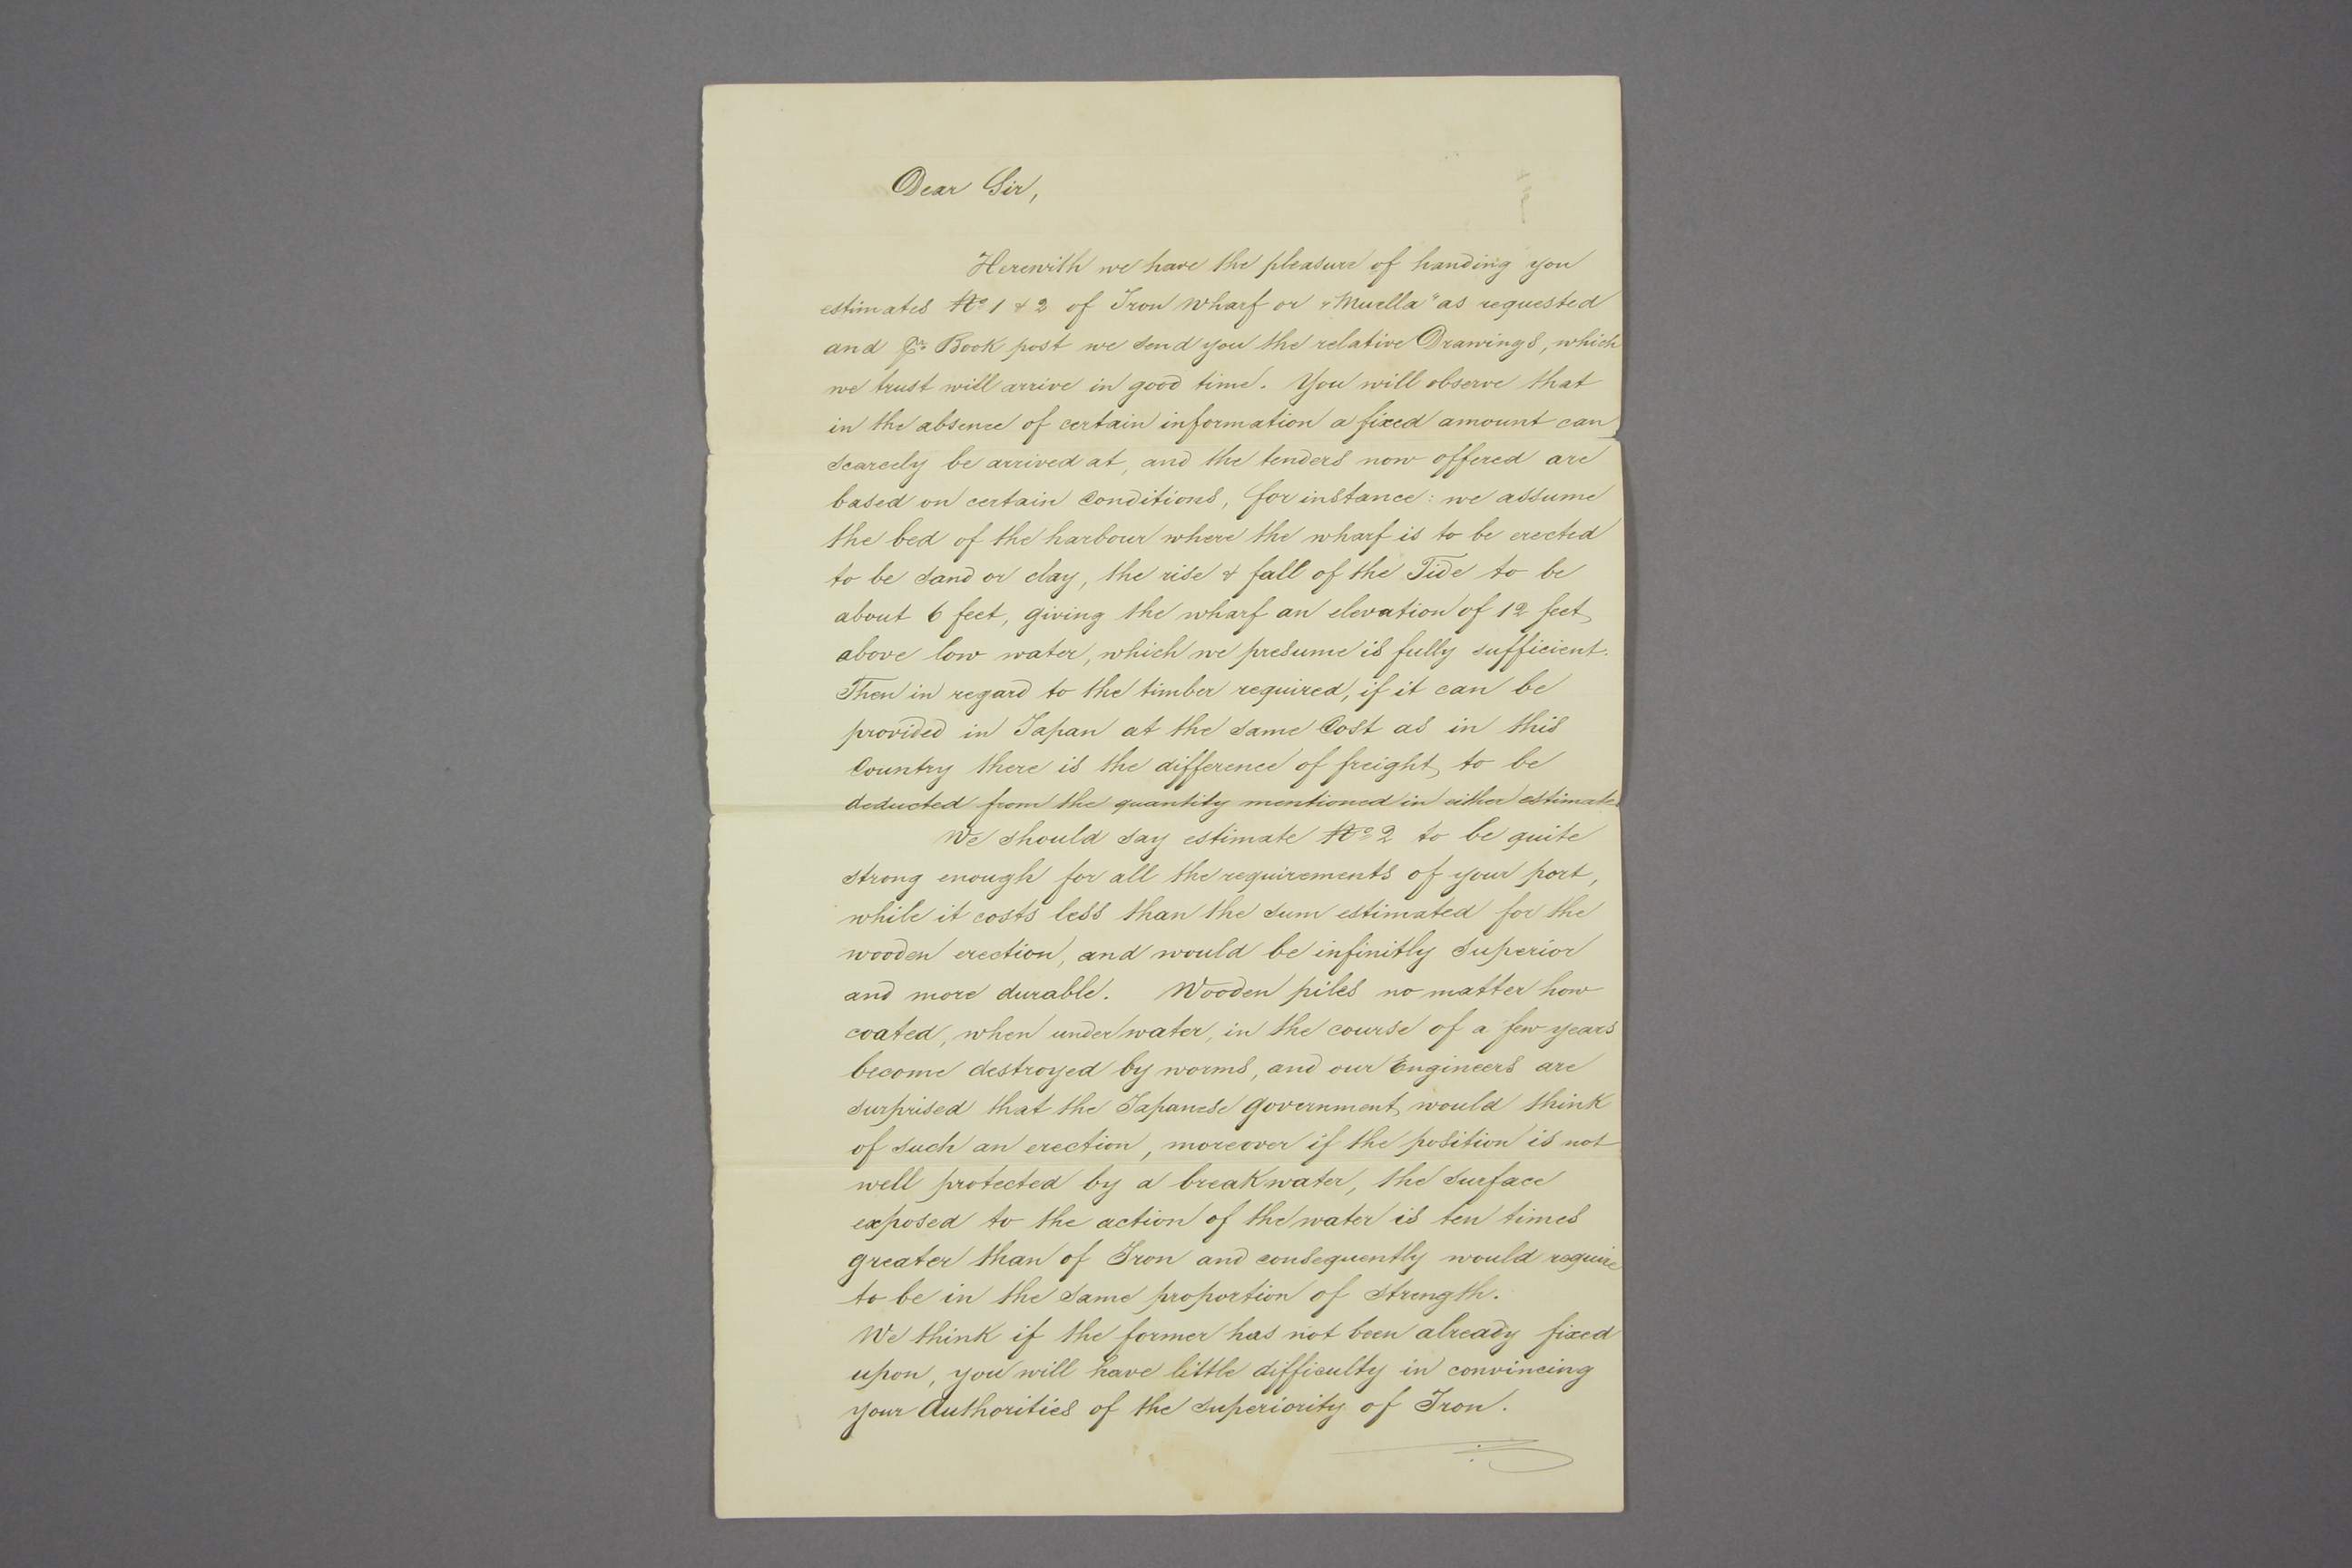 Dear Sir,
Herewith we have the pleasure of handing you
estimates No 1 & 2 of Iron Wharf or "Muella" as requested
and Pr Book post we send you the relative Drawings, which
we trust will arrive in good time. You will observe that
in the absence of certain information a fixed amount can
scarcely be arrived at, and the tenders now offered are
based on certain Conditions, for instance: we assume
the bed of the harbour where the wharf is to be erected
to be sand or clay, the rise & fall of the Tide to be
about 6 feet, giving the wharf an elevation of 12 feet
above low water, which we presume is fully sufficient.
Then in regard to the timber required, if it can be
provided in Japan at the same Cost as in this
Country there is the difference of freight to be
deducted from the quantity mentioned in either estimate.
We should say estimate No 2 to be quite
strong enough for all the requirements of your port,
while it costs less than the sum estimated for the
wooden erection, and would be infinitly superior
and more durable. Wooden piles no matter how
coated, when under water, in the course of a few years
become destroyed by worms, and our Engineers are
surprised that the Japanese Government would think
of such an erection, moreover if the position is not
well protected by a breakwater, the surface
exposed to the action of the water is ten times
greater than of Iron and consequently would require
to be in the same proportion of strength.
We think if the former has not been already fixed
upon, you will have little difficulty in convincing
your Authorities of the superiority of Iron.